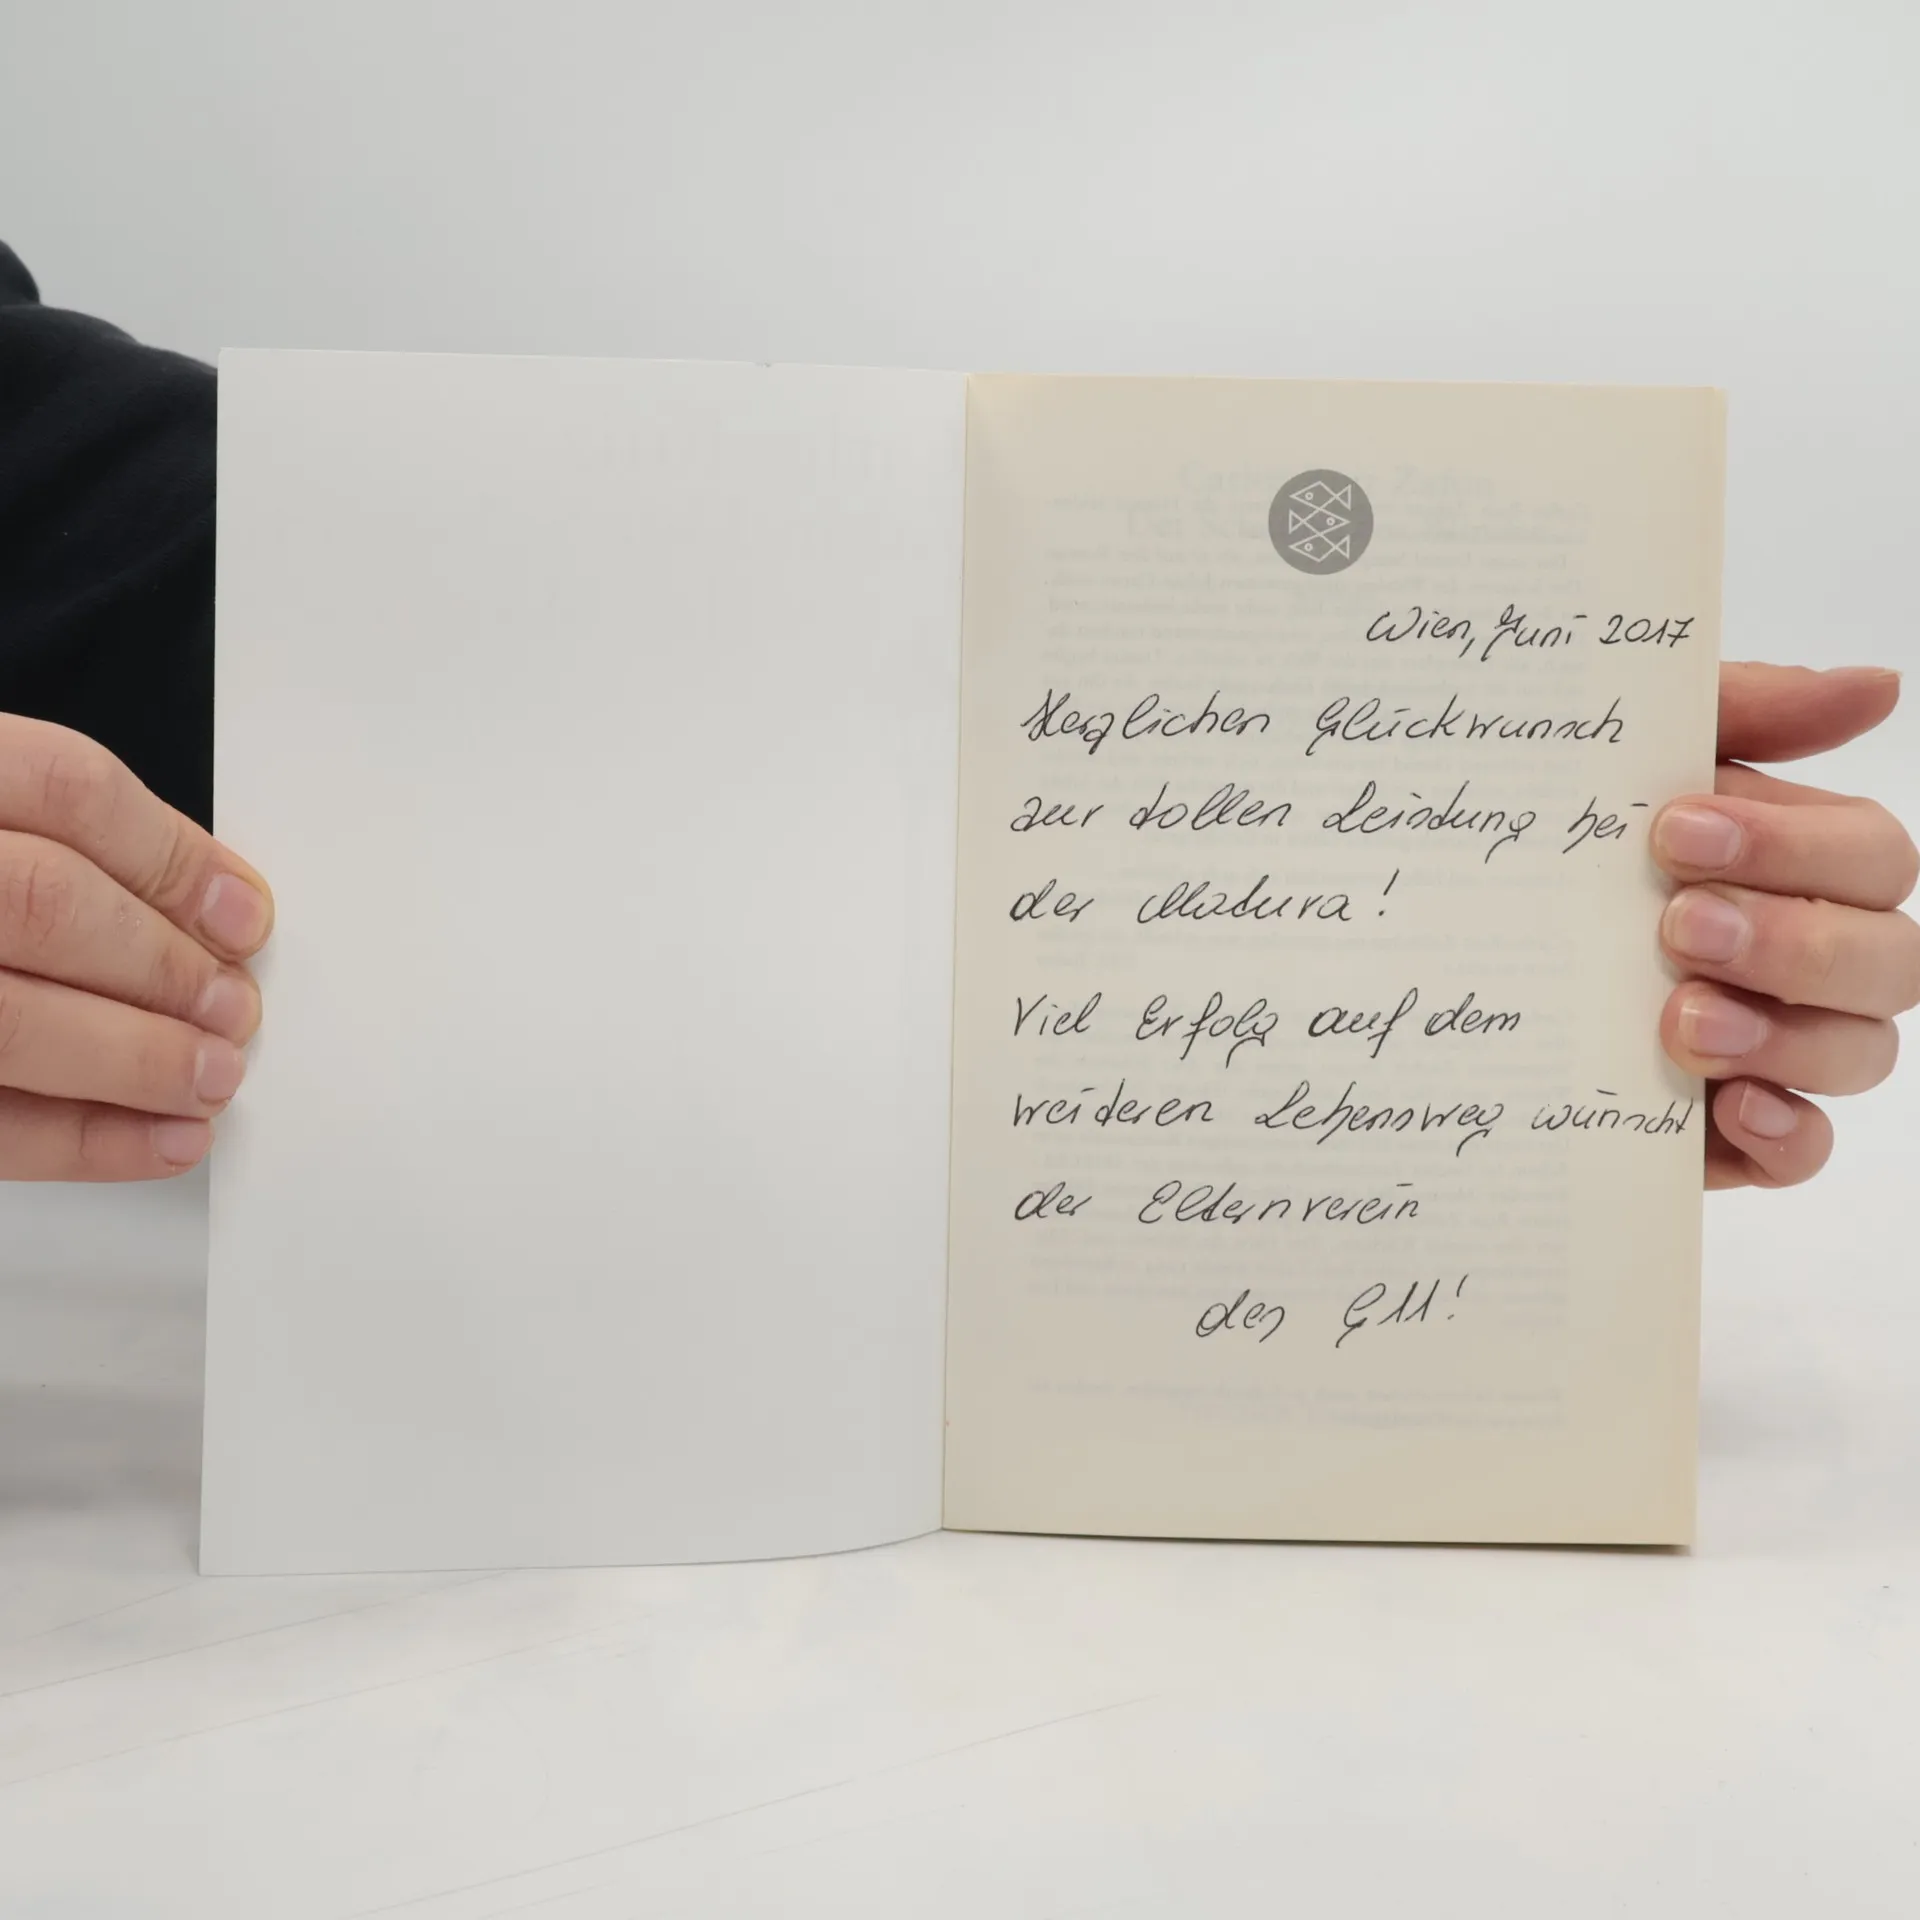 Wien, Juni 2017
Herzlichen Glückwunsch
zur tollen Leistung bei
der Matura!
Viel Erfolg auf dem
weiteren Lebensweg wünscht
der Elternverein
des G11!